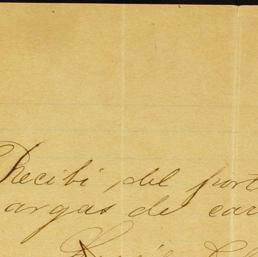 Recibi del port
argas de car